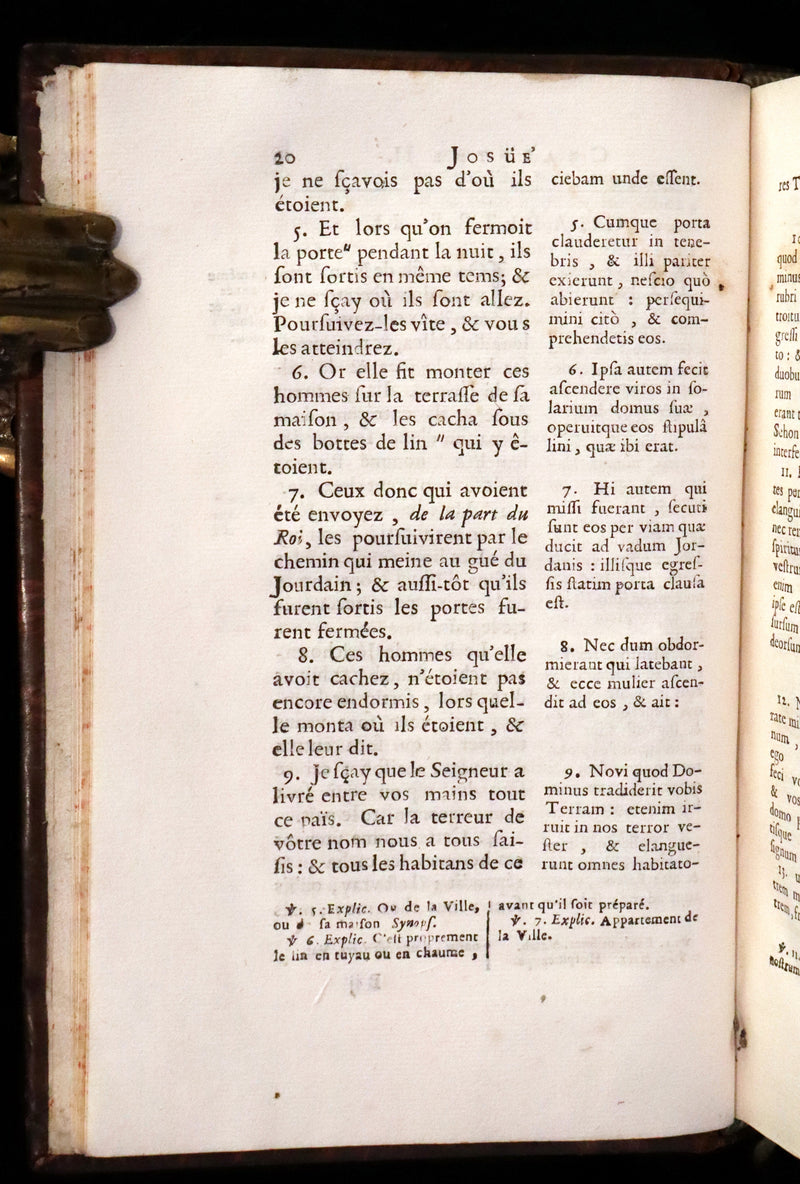 20 JOSÜE'
je ne ſçavois pas d'où ils
étoient.
5. Et lors qu'on fermoit
la porte" pendant la nuit, ils
ſont ſortis en même tems; &
je ne ſçay où ils ſont allez.
Pourſuivez-les vîte, & vous
les atteindrez.
6. Or elle fit monter ces
hommes ſur la terraſſe de ſa
maiſon, & les cacha ſous
des bottes de lin " qui y ê-
toient.
7. Ceux donc qui avoient
été envoyez, de la part du
Roi, les pourſuivirent par le
chemin qui meine au gué du
Jourdain; & auſſi-tôt qu'ils
furent ſortis les portes fu-
rent fermées.
8. Ces hommes qu'elle
avoit cachez, n'étoient pas
encore endormis, lors quel-
le monta où ils étoient, &
elle leur dit.
9. Je ſçay que le Seigneur a
livré entre vos mains tout
ce païs. Car la terreur de
vôtre nom nous a tous ſai-
ſis: & tous les habitans de ce
ciebam unde eſſent.
5. Cumque porta
clauderetur in tene-
bris, & illi pariter
exierunt, neſcio quò
abierunt: perſequi-
mini citò, & com-
prehendetis eos.
6. Ipſa autem fecit
aſcendere viros in ſo-
larium domus ſuæ,
operuitque eos ſtipulâ
lini, quæ ibi erat.
7. Hi autem qui
miſſi fuerant, ſecuti
ſunt eos per viam quæ
ducit ad vadum Jor-
danis: illiſque egreſ-
ſis ſtatim porta clauſa
eſt.
8. Nec dum obdor-
mierant qui latebant,
& ecce mulier aſcen-
dit ad eos, & ait:
9. Novi quod Do-
minus tradiderit vobis
Terram: etenim ir-
ruit in nos terror ve-
ſter, & elangue-
runt omnes habitato-
℣. 5. Explic. Ou de la Ville,
ou ſa maiſon Synopſ.
℣ 6. Explic. C'eſt proprement
le lin en tuyau ou en chaume,
avant qu'il ſoit préparé.
℣. 7. Explic. Appartement de
la Ville.
res T
quod
minus
rubri
troitu
greſſi
to: &
duobu
rum
erant t
Schon
interfe
11.
tes per
elangui
nec rer
ſpiritus
veſtru
enim
ipſe eſt
ſurſum
deorſun
12.
rate mi
num,
ego
feci v
& vos
domo p
tiſque
ſignum
13.
trem
℣. 11.
noſtrum